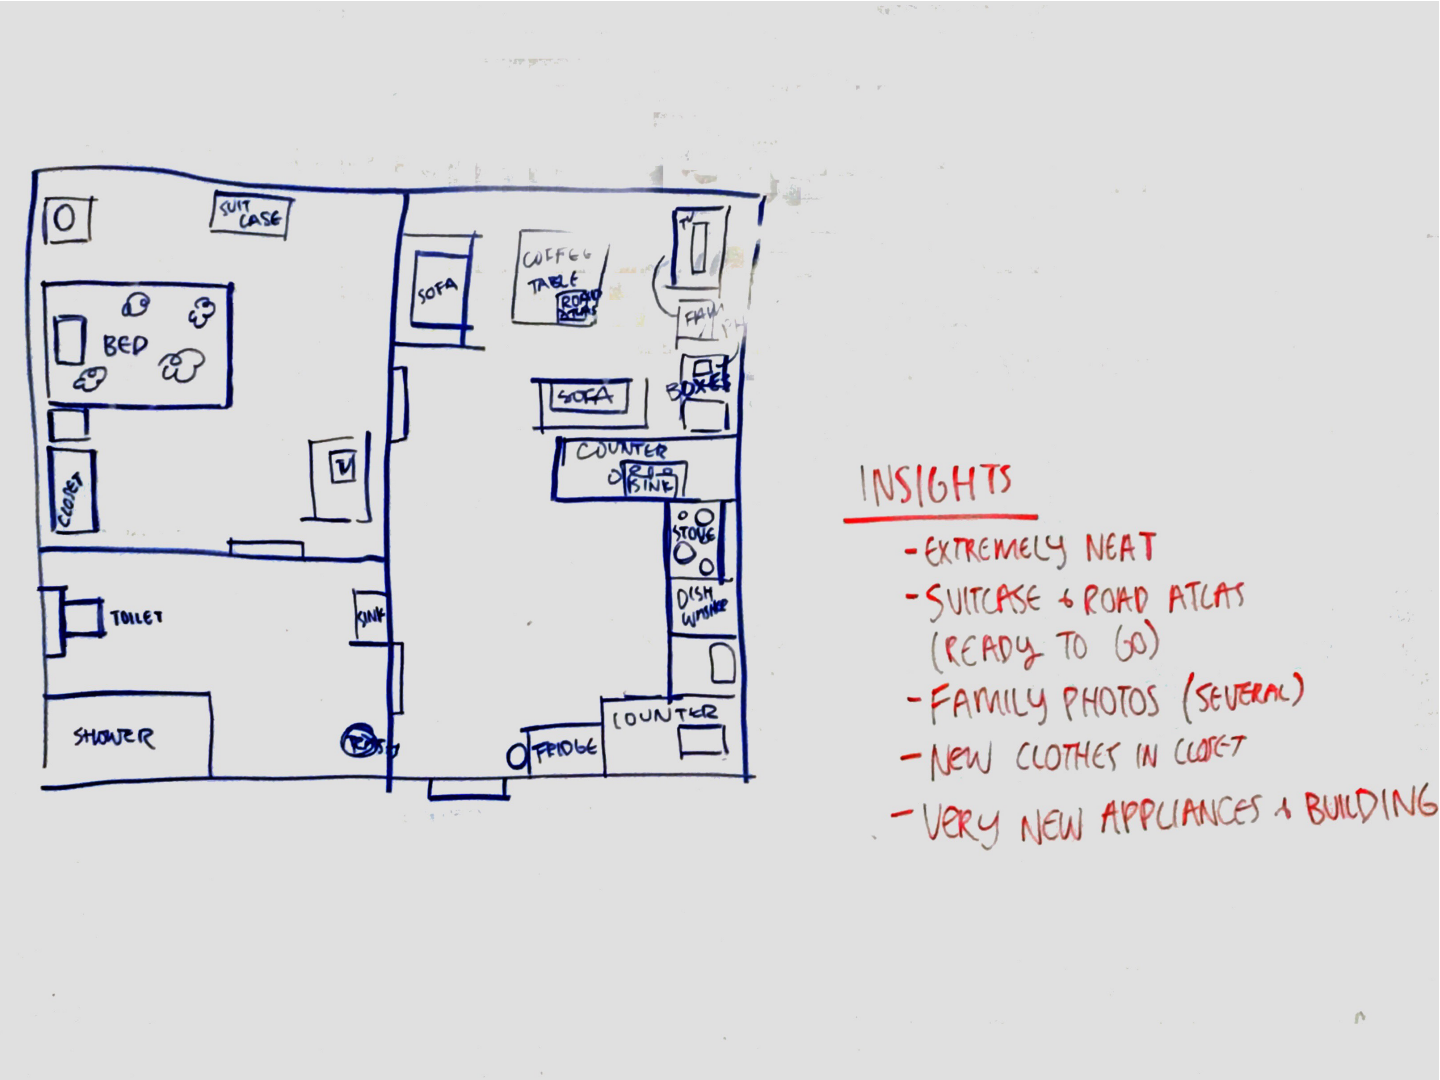 SUIT
CASE
BED
CLOSET
TV
SOFA
COFFEE
TABLE
ROAD
ATLAS
TV
FAM
PH
BOXES
SOFA
COUNTER
SINK
STOVE
DISH
WASHER
COUNTER
FRIDGE
TOILET
SINK
SHOWER
INSIGHTS
- EXTREMELY NEAT
- SUITCASE & ROAD ATLAS
(READY TO GO)
- FAMILY PHOTOS (SEVERAL)
- NEW CLOTHES IN CLOSET
- VERY NEW APPLIANCES & BUILDING